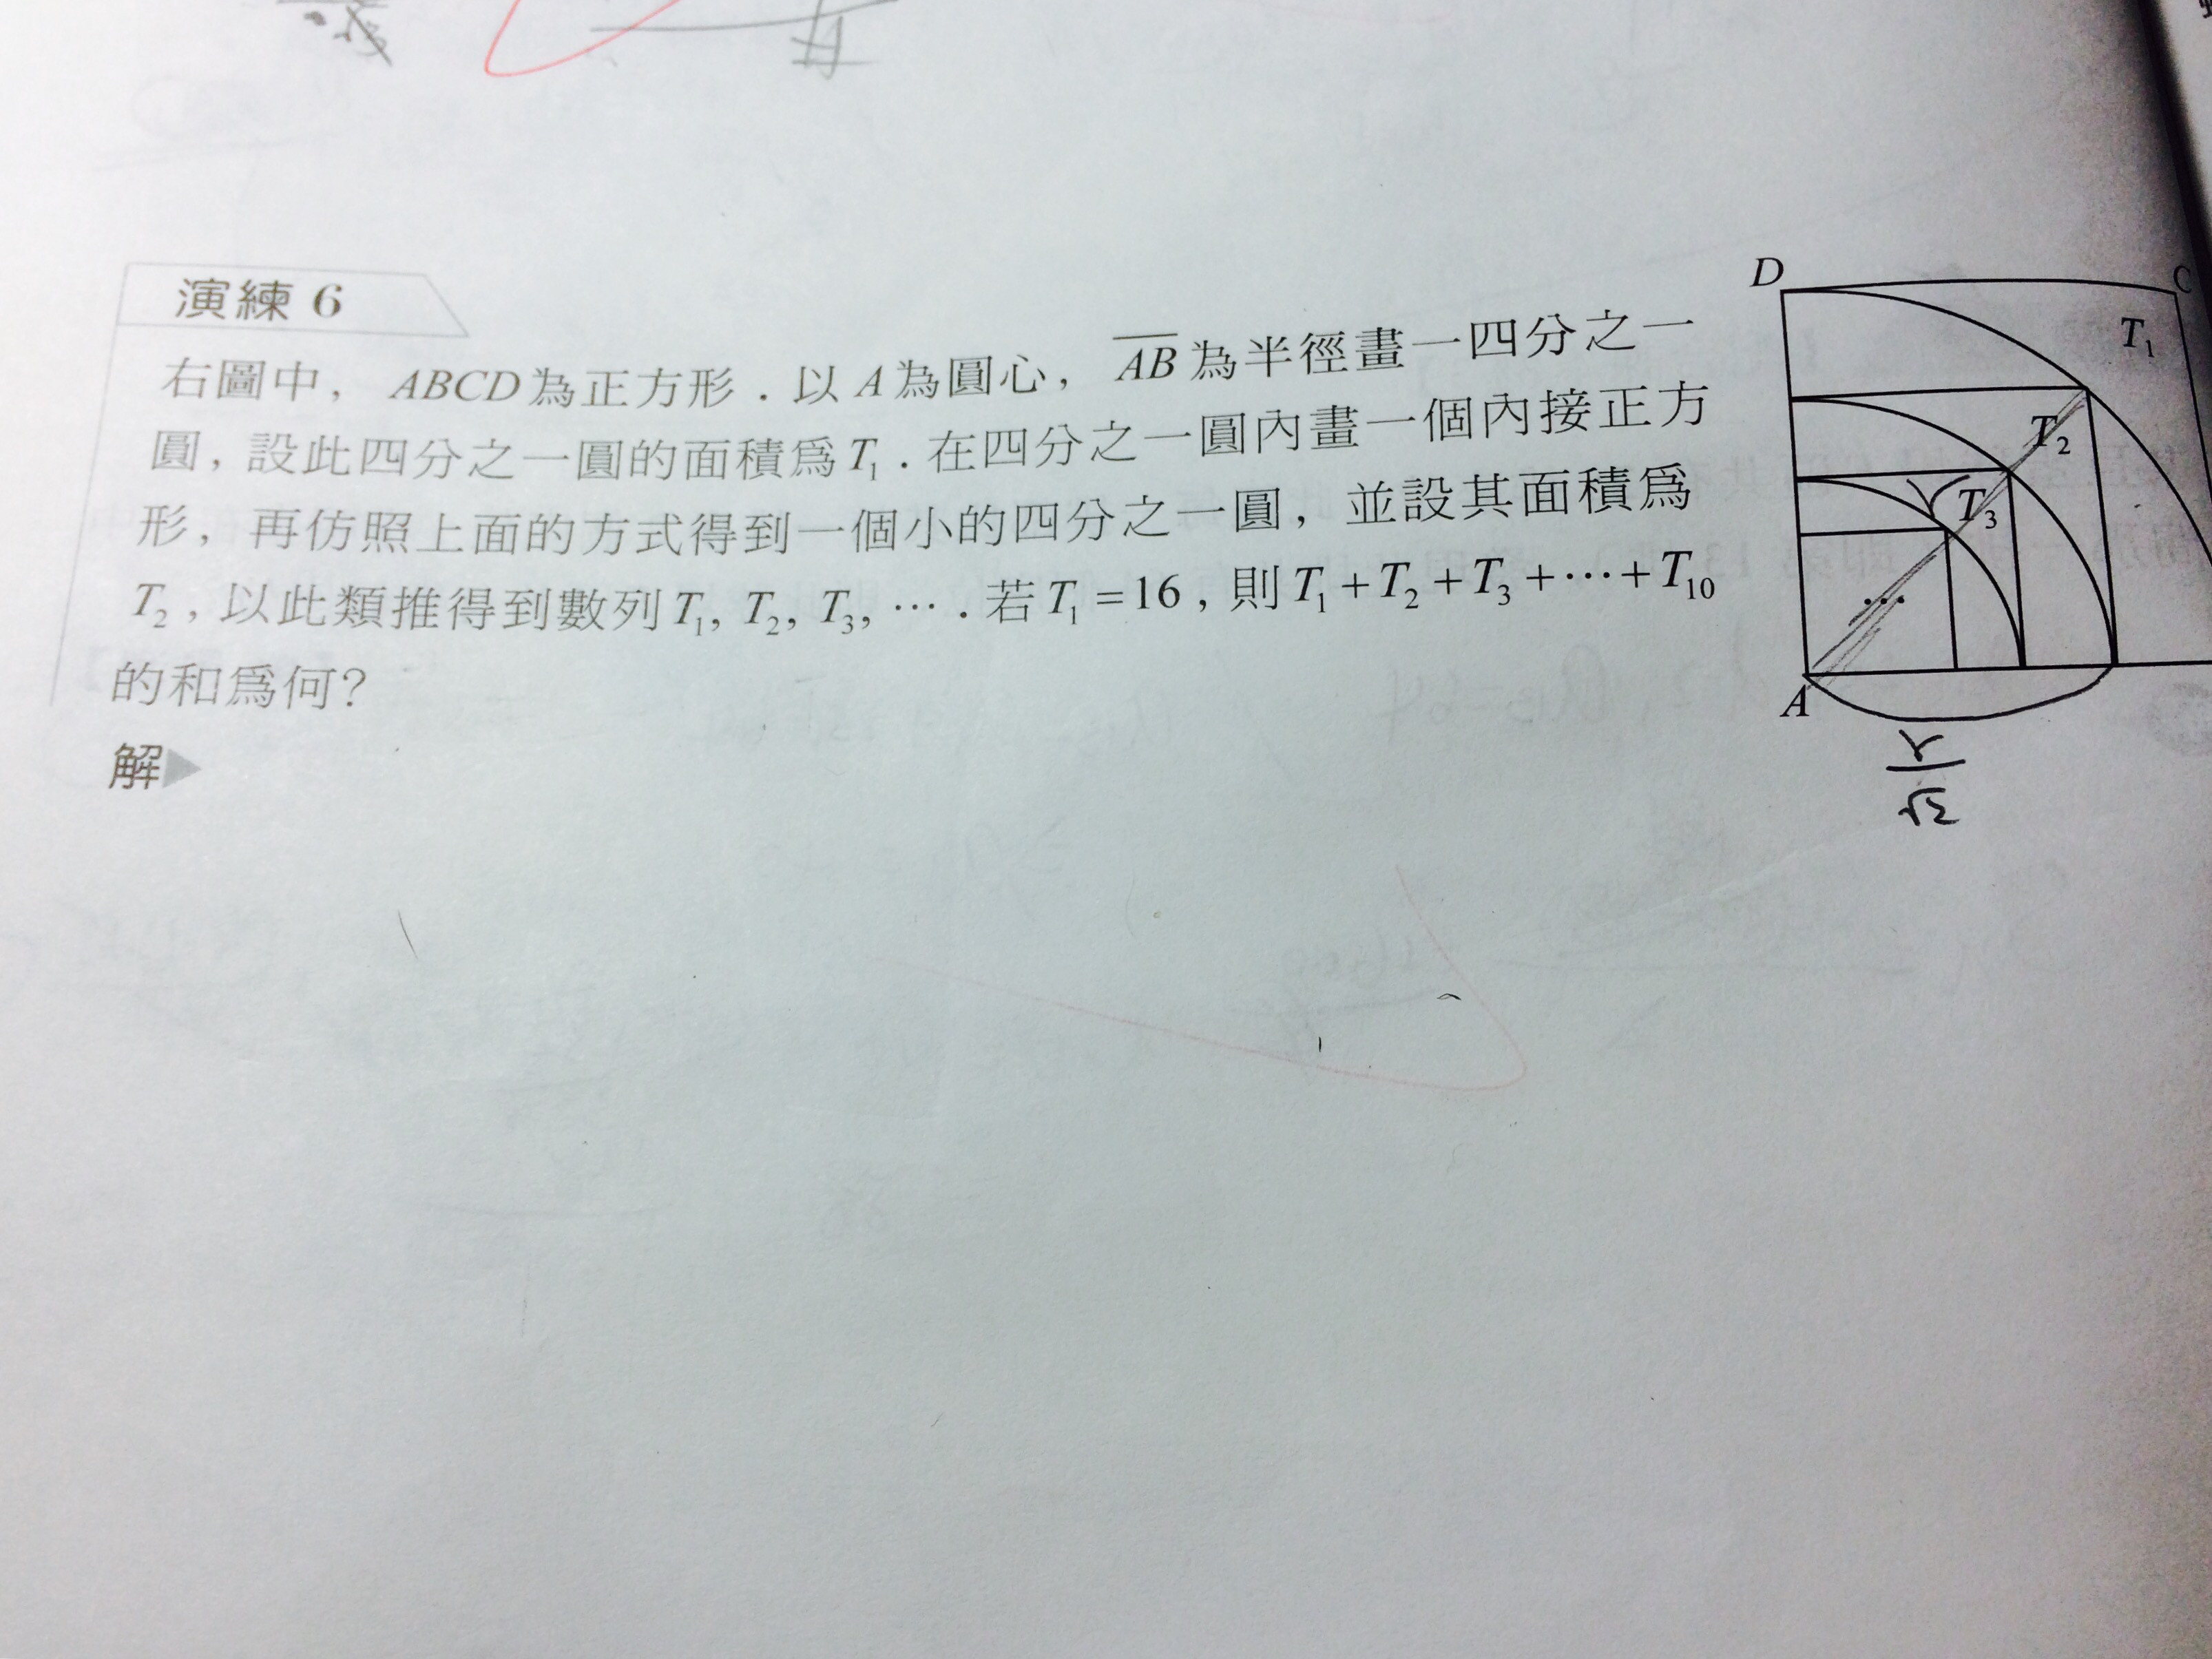 演練 6
右圖中，ABCD為正方形．以A為圓心，AB為半徑畫一四分之一
圓，設此四分之一圓的面積爲T₁．在四分之一圓內畫一個內接正方
形，再仿照上面的方式得到一個小的四分之一圓，並設其面積爲
T₂，以此類推得到數列T₁, T₂, T₃, ⋯．若T₁=16，則T₁+T₂+T₃+⋯+T₁₀
的和爲何？
解▶
D
C
T₁
T₂
T₃
⋯
A
r
√2